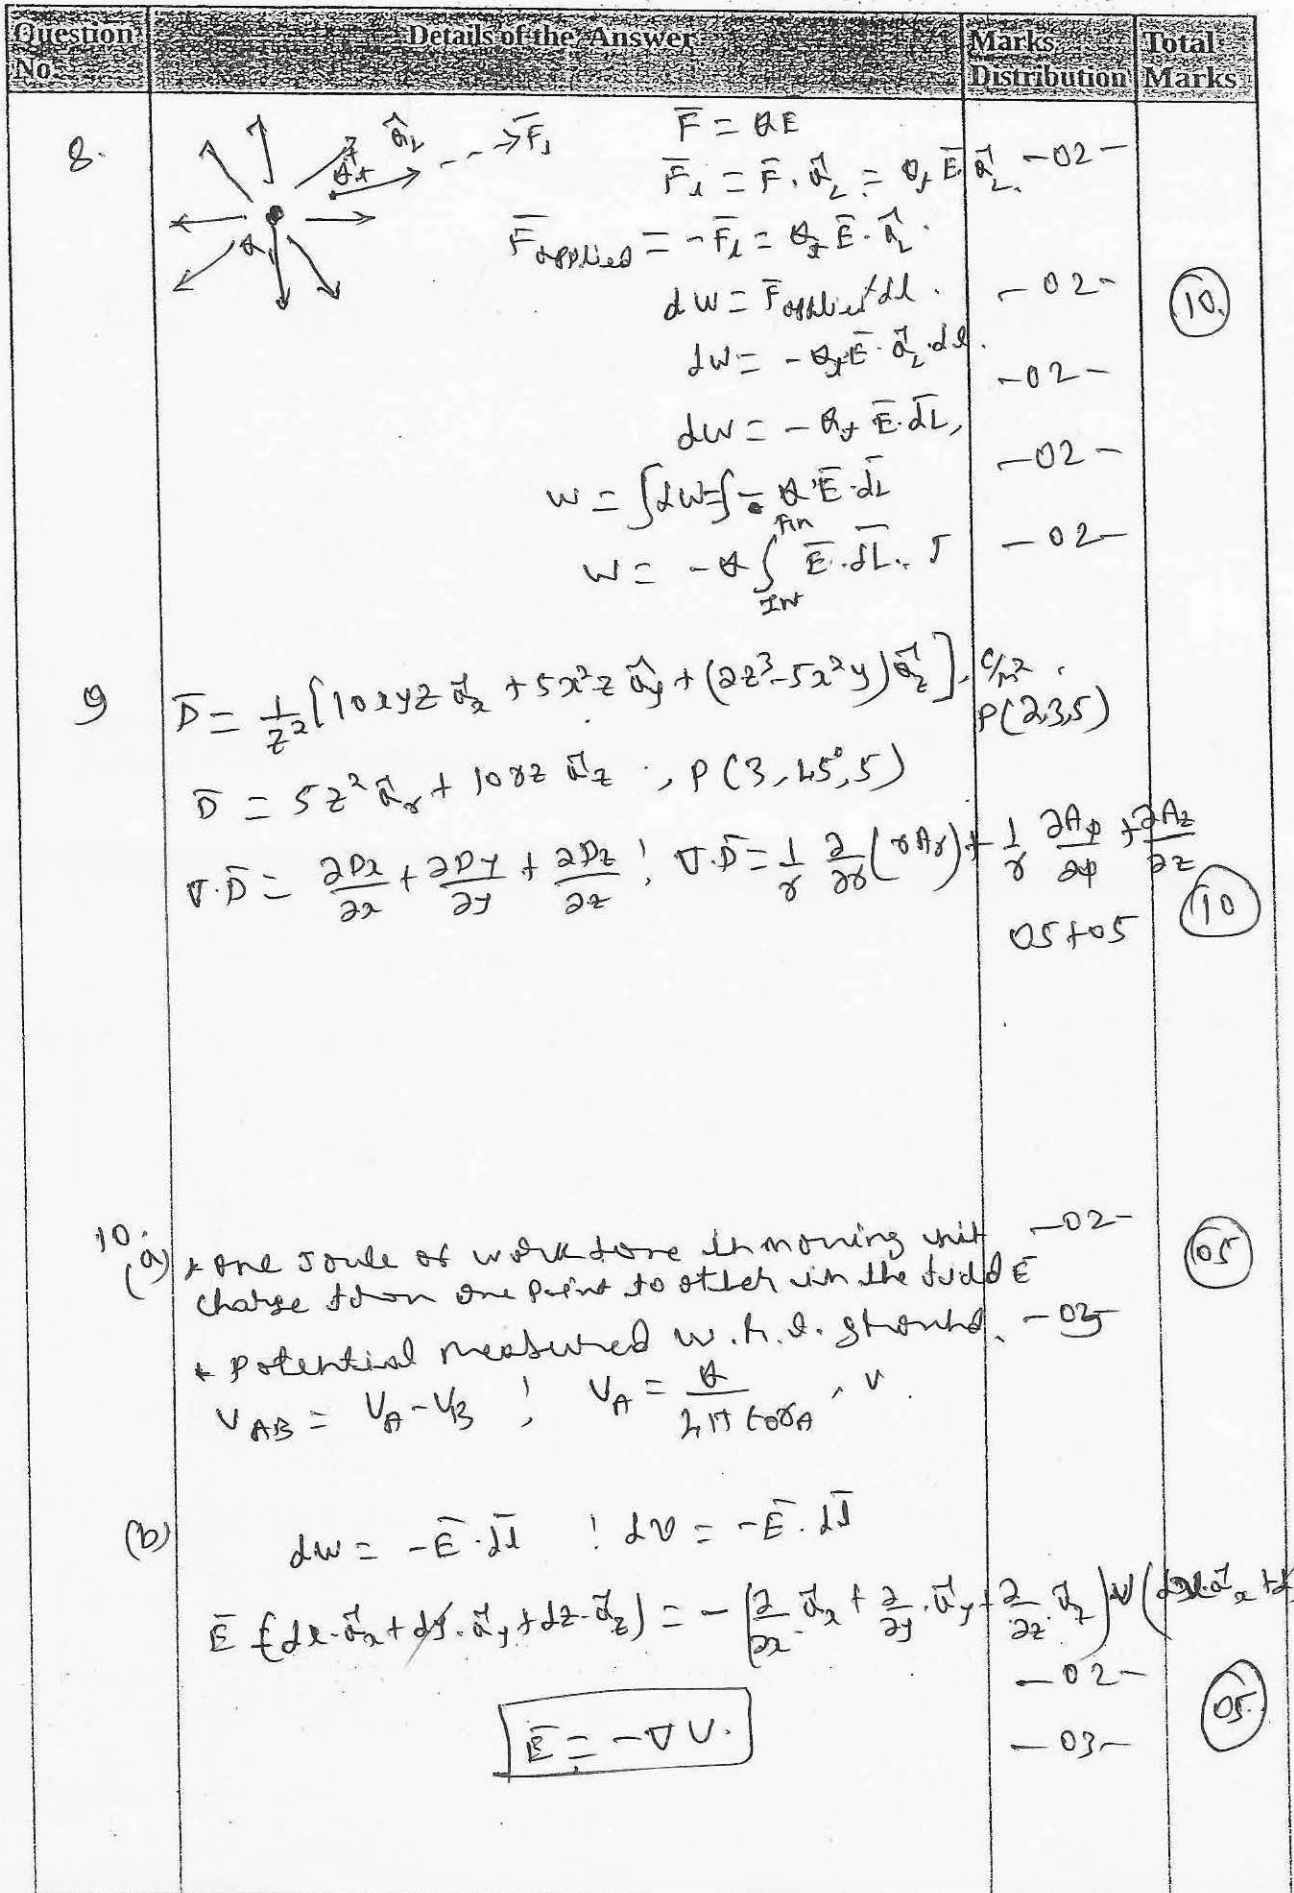 Question No. Details of the Answer Marks Distribution Total Marks
8.
Q₁ Q_t â_L F̄_l
F̄ = QE
F̄_l = F̄ . â_L = Q_t Ē â_L. -02-
F̄applied = -F̄_l = Q_t Ē . â_L .
dW = F̄applied × dl . -02- 10.
dW = - Q_t Ē . â_L . dl . -02-
dW = - Q_t Ē . dL̄, -02-
W = ∫dW = ∫ - Q Ē . dL̄
W = -Q ∫_{Int}^{Fin} Ē . dL̄. J -02-
9 D̄ = 1/z² [10xyz â_x + 5x²z â_y + (2z³-5x²y) â_z]. C/m² . P(2,3,5)
D̄ = 5z² â_r + 10rz â_z ., P(3, 45°, 5)
∇.D̄ = ∂Dx/∂x + ∂Dy/∂y + ∂Dz/∂z ; ∇.D̄ = 1/r ∂/∂r (rA_r) + 1/r ∂A_φ/∂φ + ∂A_z/∂z
05+05 10
10. (a) * one Joule of work done in moving unit -02- 05
charge from one point to other in the field E
* Potential measured w.r.t. ground. -03-
V_AB = V_A - V_B ; V_A = Q/4π∈₀r_A , V.
(b) dw = -Ē . dl̄ ; dv = -Ē . dl̄
Ē {dx . â_x + dy . â_y + dz . â_z) = - (∂/∂x . â_x + ∂/∂y . â_y + ∂/∂z . â_z) V (dx . â_x + d
-02-
Ē = -∇V. -03- 05.